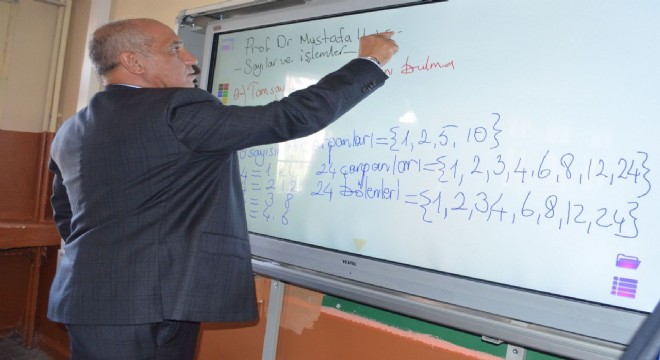 Prof Dr Mustafa
- Sayılar ve işlemler -
a-) Tamsayı bulma
çarpanları = {1, 2, 5, 10}
24 çarpanları = {1, 2, 3, 4, 6, 8, 12, 24}
24 Bölenleri = {1, 2, 3 4, 6, 8, 12, 24}
= 2. 12
= 3. 8
= 4. 6
VESTEL